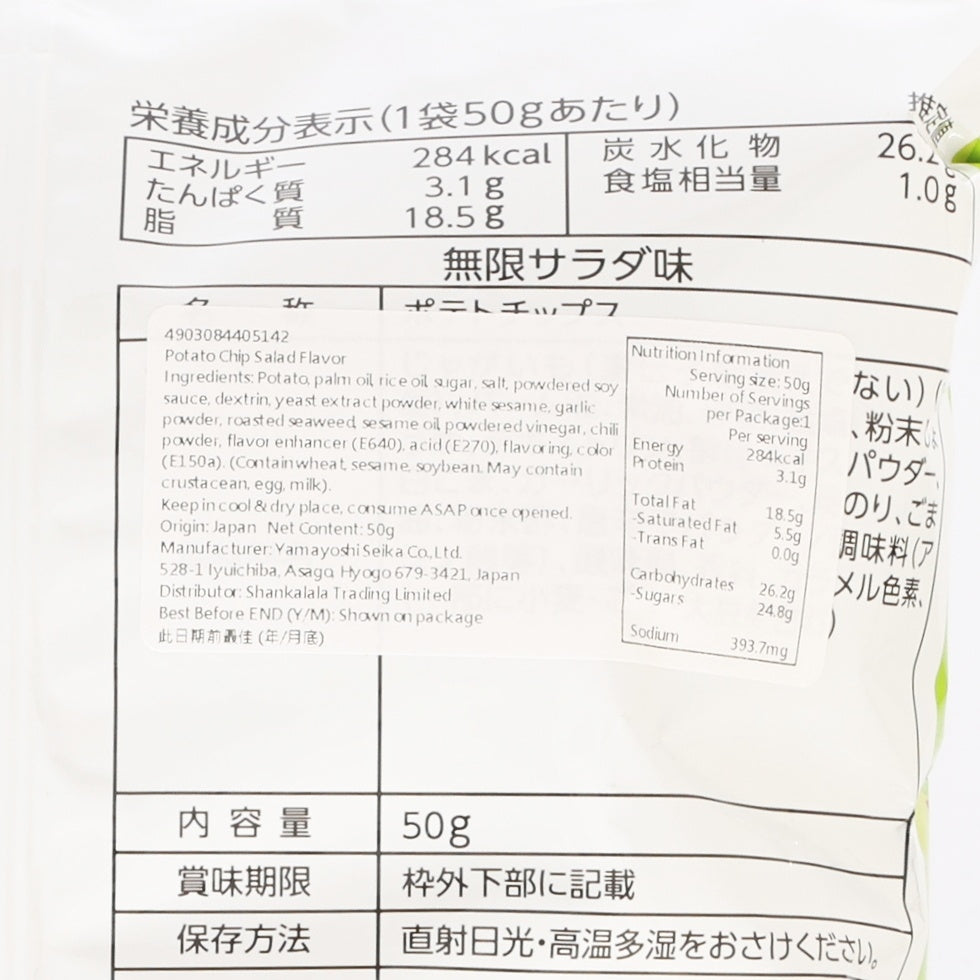 栄養成分表示(1袋50gあたり)
エネルギー 284kcal 炭水化物
たんぱく質 3.1g 食塩相当量 1.0g
脂質 18.5g
無限サラダ味
名称 ポテトチップス
4903084405142
Potato Chip Salad Flavor
Ingredients: Potato, palm oil, rice oil, sugar, salt, powdered soy
sauce, dextrin, yeast extract powder, white sesame, garlic
powder, roasted seaweed, sesame oil, powdered vinegar, chili
powder, flavor enhancer (E640), acid (E270), flavoring, color
(E150a). (Contain wheat, sesame, soybean. May contain
crustacean, egg, milk).
Keep in cool & dry place, consume ASAP once opened.
Origin: Japan Net Content: 50g
Manufacturer: Yamayoshi Seika Co., Ltd.
528-1 Iyuichiba, Asago, Hyogo 679-3421, Japan
Distributor: Shankalala Trading Limited
Best Before END (Y/M): Shown on package
此日期前最佳 (年/月底)
Nutrition Information
Serving size: 50g
Number of Servings
per Package:1
Per serving
Energy 284kcal
Protein 3.1g
Total Fat 18.5g
-Saturated Fat 5.5g
-Trans Fat 0.0g
Carbohydrates 26.2g
-Sugars 24.8g
Sodium 393.7mg
ない)(
、粉末
パウダー、
のり、ごま
調味料(ア
メル色素、
)
内容量 50g
賞味期限 枠外下部に記載
保存方法 直射日光・高温多湿をおさけください。